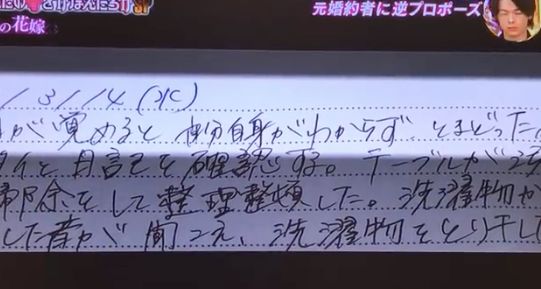 の花嫁
元婚約者に逆プロポーズ
/3/14(水)
が覚めると自分自身がわからず、とまどった。
と日記を確認する。テーブルが
掃除をして整理整頓した。洗濯物が
した音が聞こえ、洗濯物をとり干し